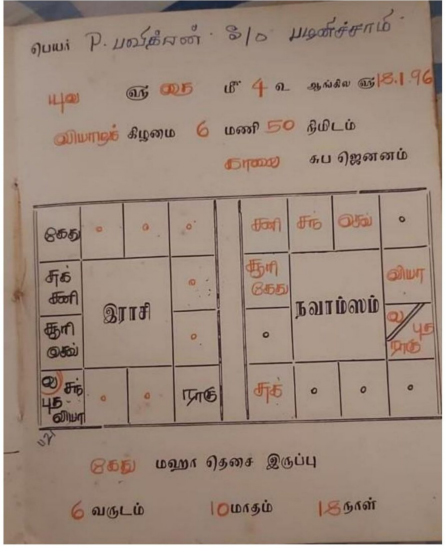 பெயர் P. பவிக்ஷன் S/o பழனிச்சாமி
யுவ ஸ்ரீ தை மீ 4 உ ஆங்கில ஸ்ரீ 18.1.96
வியாழக் கிழமை 6 மணி 50 நிமிடம்
காலை சுப ஜெனனம்
கேது
சுக் சனி
சூரி செவ்
இராசி
ல சந் புத வியா
ராகு
சனி சந் செவ்
சூரி கேது
வியா
நவாம்ஸம்
ல புத ராகு
சுக்
கேது மஹா தெசை இருப்பு
6 வருடம் 10 மாதம் 18 நாள்